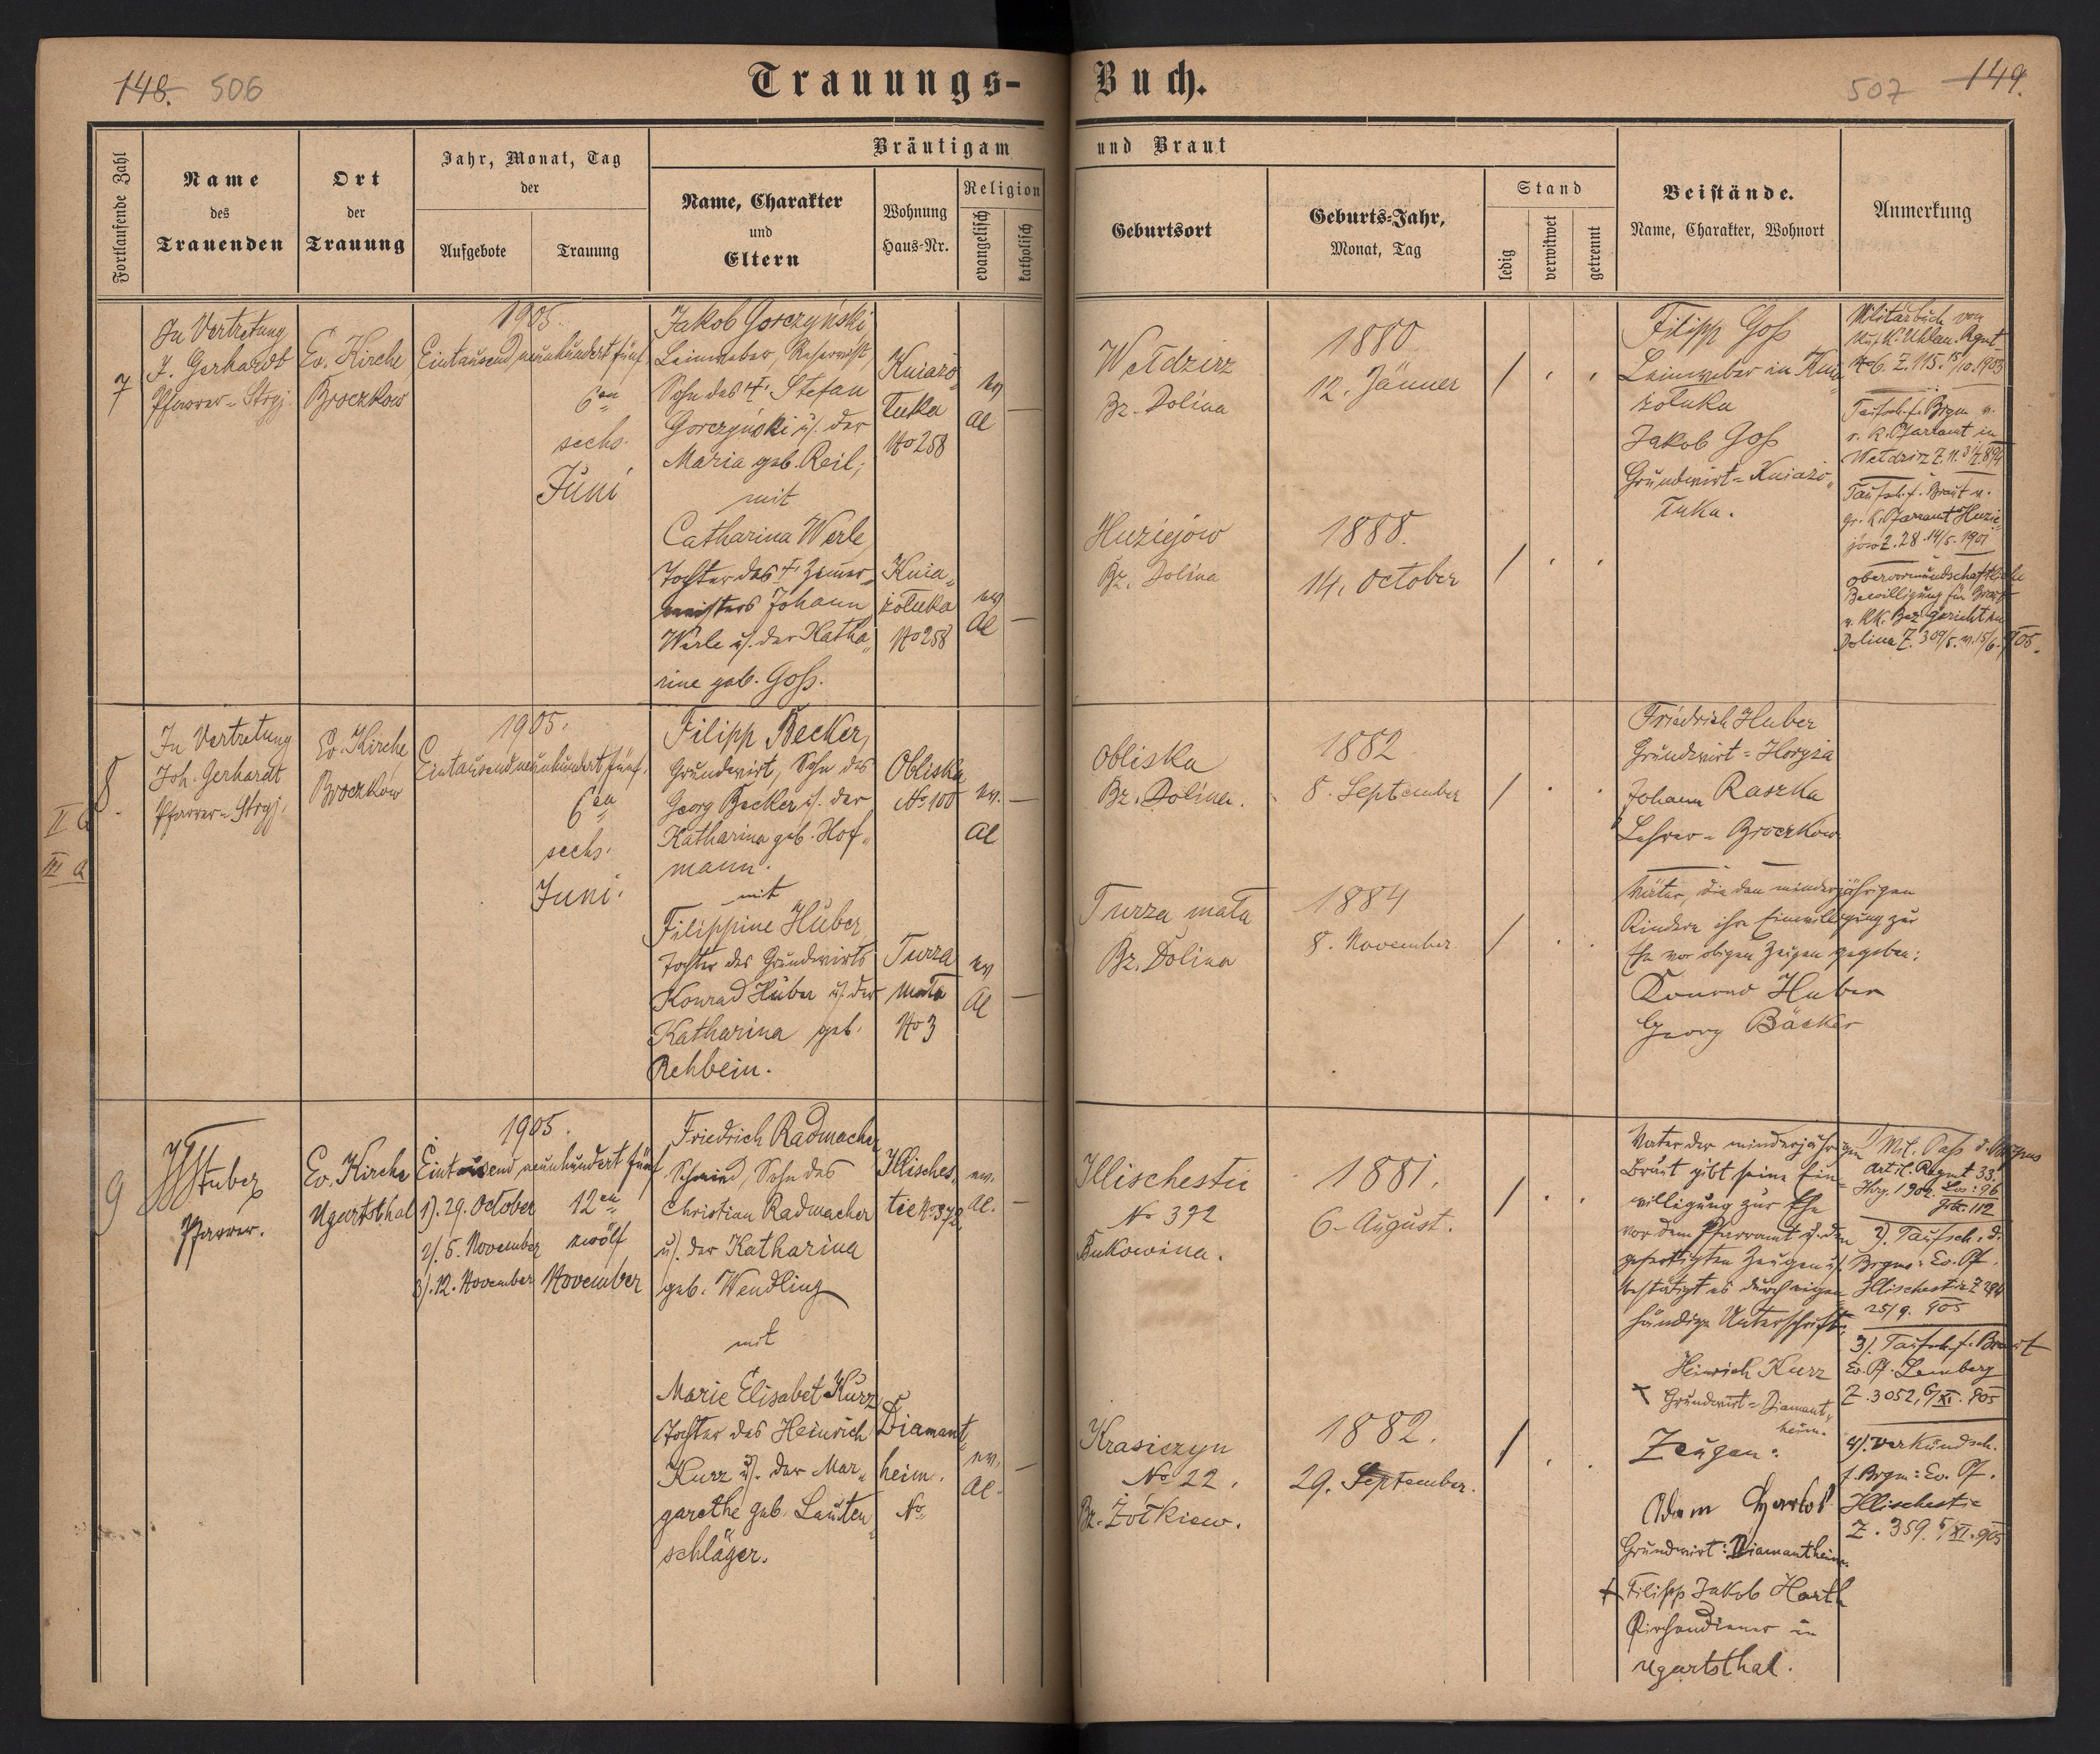 148. 506
Trauungs-Buch.
507 149.
Fortlaufende Zahl
Name
des
Trauenden
Ort
der
Trauung
Jahr, Monat, Tag
der
Aufgebote
Trauung
Bräutigam und Braut
Name, Charakter
und
Eltern
Wohnung
Haus-Nr.
Religion
evangelisch
katholisch
Geburtsort
Geburts-Jahr,
Monat, Tag
Stand
ledig
verwitwet
getrennt
Beistände.
Name, Charakter, Wohnort
Anmerkung
7
In Vertretung
J. Gerhardt
Pfarrer-Stryj.
Ev. Kirche
Broczkow
1905.
Eintausend neunhundert fünf
6en
sechs.
Juni
Jakob Gorczyński,
Leinweber, Reservist,
Sohn des + Stefan
Gorczyński u. der
Maria geb. Reil,
mit
Catharina Werle,
Tochter des + Zimer-
meisters Johann
Werle u. der Katha-
rine geb. Goß.
Kniazo-
łuka
No 258
ev
Al
Knia-
żołuka
No 258
ev
Al
Wełdzirz
Bz. Dolina
1880
12. Jänner
Huziejów
Bz. Dolina
1888.
14. October
Filipp Goß
Leinweber in Knia-
żołuka
Jakob Goß
Grundwirt-Kniażo-
łuka.
Militärbuch von
K. u. K. Uhlan. Rgmt
No 6. Z. 115. 15/10. 1903
Taufsch. f. Brgm v.
r. k. Pfarramt in
Wełdzirz Z. 11.
Taufsch. f. Braut v.
gr. k. Pfarramt Huzie-
jów Z. 28. 14/5. 1901
obervormundschaftliche
Bewilligung für Braut
v. kk. Bez. gericht in
Dolina Z. 309/5. v. 15/6. 905.
8.
II a
III a
In Vertretung
Joh. Gerhardt
Pfarrer-Stryj.
Ev. Kirche
Broczkow
1905.
Eintausend neunhundert fünf.
6en
sechs.
Juni.
Filipp Becker,
Grundwirt, Sohn des
Georg Becker u. der
Katharina geb. Hof-
mann.
mit
Filippine Huber,
Tochter des Grundwirts
Konrad Huber u. der
Katharina geb.
Rehbein.
Obliska
No 100
ev.
Al
Turza
mała
No 3
ev
Al
Obliska
Bz. Dolina.
1882
8. September
Turza mała
Bz. Dolina
1884
8. November
Friedrich Huber
Grundwirt-Horyza
Johann Raszka
Lehrer-Broczkow
Väter, die den minderjährigen
Kindern ihre Einwilligung zur
Ehe vor obigen Zeugen gegeben:
Konrad Huber
Georg Bäcker
9
Stuber
Pfarrer.
Ev. Kirche
Ugartsthal
1905.
Eintausend neunhundert fünf
1). 29. October
2). 5. November
3). 12. November
12en
zwölf
November
Friedrich Radmacher
Schmied, Sohn des
Christian Radmacher
u. der Katharina
geb. Wendling
mit
Marie Elisabet Kurz,
Tochter des Heinrich
Kurz u. der Mar-
garethe geb. Lauten-
schläger.
Illisches-
tie No 372
ev.
Al.
Diamant-
heim.
No
ev.
Al.
Illischestie
No 372
Bukowina.
1881.
6. August.
Krasiczyn
No 22.
Bz. Żółkiew.
1882.
29. September.
Vater der minderjährigen
Braut gibt seine Ein-
willigung zur Ehe
vor dem Pfarramt u. den
gefertigten Zeugen u.
bestätigt es durch eigen-
händige Unterschrift:
Heinrich Kurz
Grundwirt-Diamant-
heim.
Zeugen:
Adam
Grundwirt: Diamantheim
+ Filipp Jakob Harth
Kirchendiener in
Ugartsthal.
1) Mil. Paß d. Corps
Art. Regmt 33.
2). Taufsch. d.
Brgms: Ev. Pf.
Illischestie Z 294
25/9. 905
3). Taufsch. f. Braut
Ev. Pf. Lemberg
Z. 3052, 6/XI. 905
4). Verkündsch.
f. Brgm: Ev. Pf.
Illischestie
Z. 359. 5/XI. 905